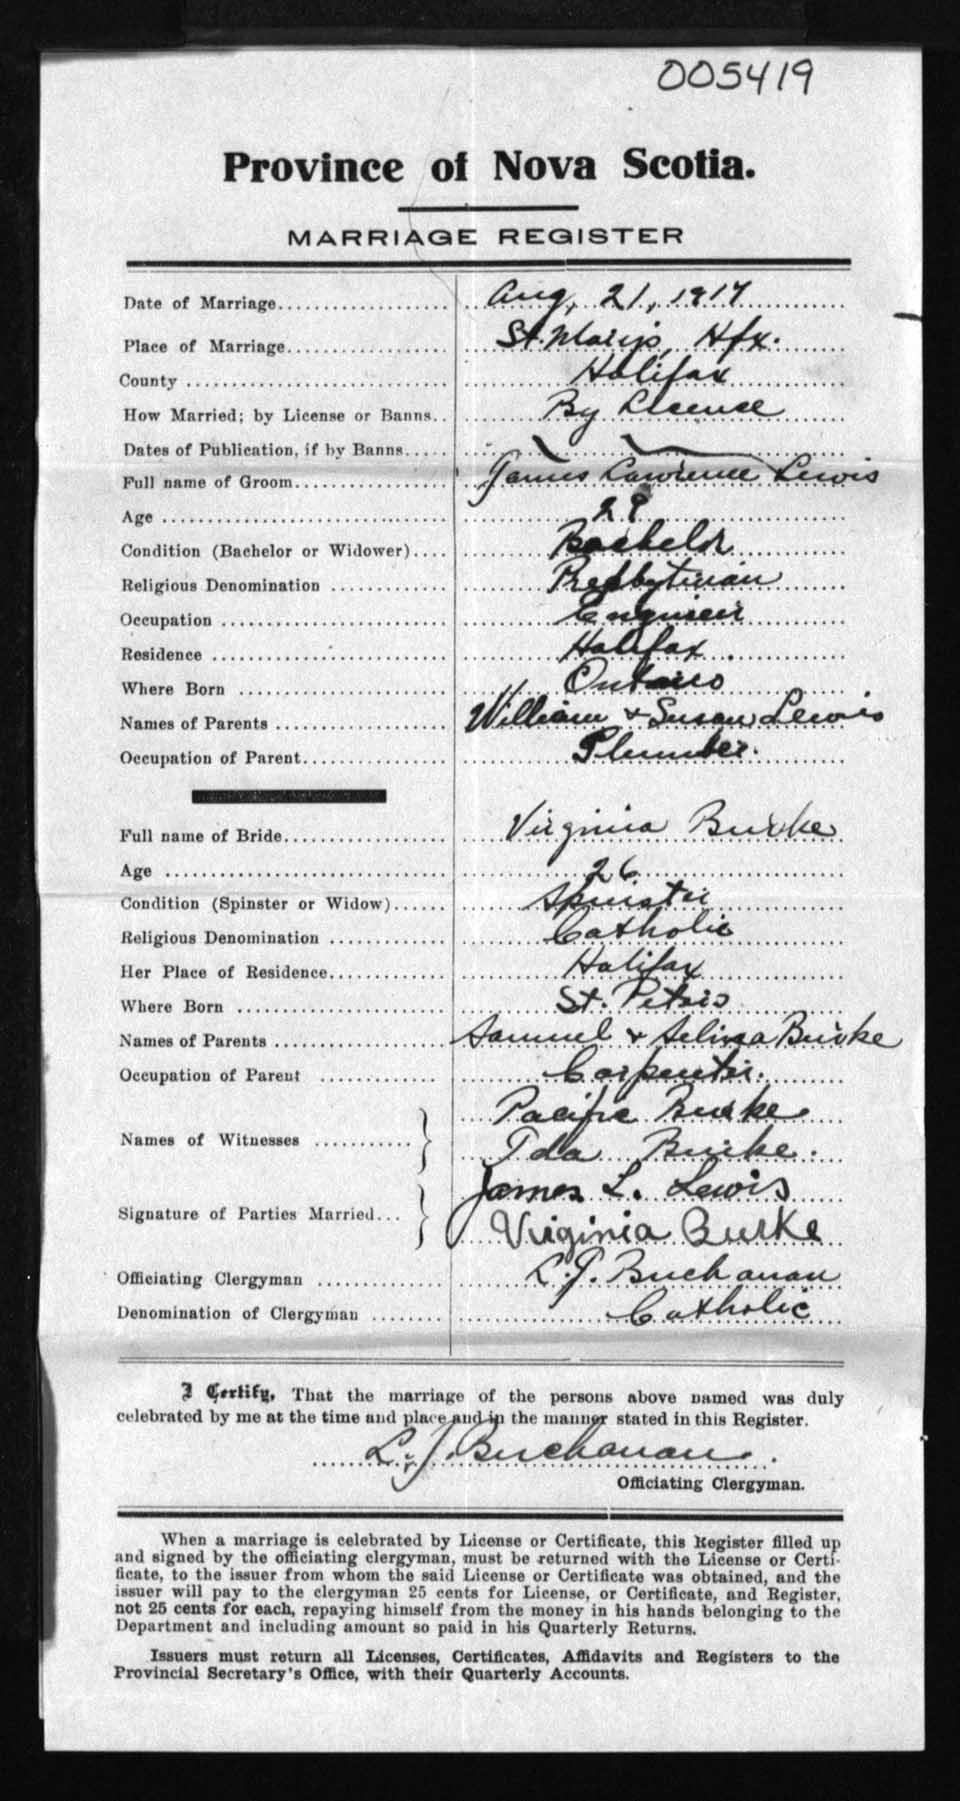 005419
Province of Nova Scotia.
MARRIAGE REGISTER
Date of Marriage Aug. 21, 1917
Place of Marriage St. Marys, Hfx.
County Halifax
How Married; by License or Banns By License
Dates of Publication, if by Banns
Full name of Groom James Lawrence Lewis
Age 29
Condition (Bachelor or Widower) Bachelor
Religious Denomination Presbyterian
Occupation Engineer
Residence Halifax
Where Born Ontario
Names of Parents William + Susan Lewis
Occupation of Parent Plumber.
Full name of Bride Virginia Burke
Age 26
Condition (Spinster or Widow) Spinster
Religious Denomination Catholic
Her Place of Residence Halifax
Where Born St. Peters
Names of Parents Samuel + Selina Burke
Occupation of Parent Carpenter.
Pacific Burke
Names of Witnesses
Ida Burke.
James L. Lewis
Signature of Parties Married
Virginia Burke
Officiating Clergyman L. J. Buchanan
Denomination of Clergyman Catholic
I Certify, That the marriage of the persons above named was duly
celebrated by me at the time and place and in the manner stated in this Register.
L. J. Buchanan
Officiating Clergyman.
When a marriage is celebrated by License or Certificate, this Register filled up
and signed by the officiating clergyman, must be returned with the License or Certi-
ficate, to the issuer from whom the said License or Certificate was obtained, and the
issuer will pay to the clergyman 25 cents for License, or Certificate, and Register,
not 25 cents for each, repaying himself from the money in his hands belonging to the
Department and including amount so paid in his Quarterly Returns.
Issuers must return all Licenses, Certificates, Affidavits and Registers to the
Provincial Secretary's Office, with their Quarterly Accounts.